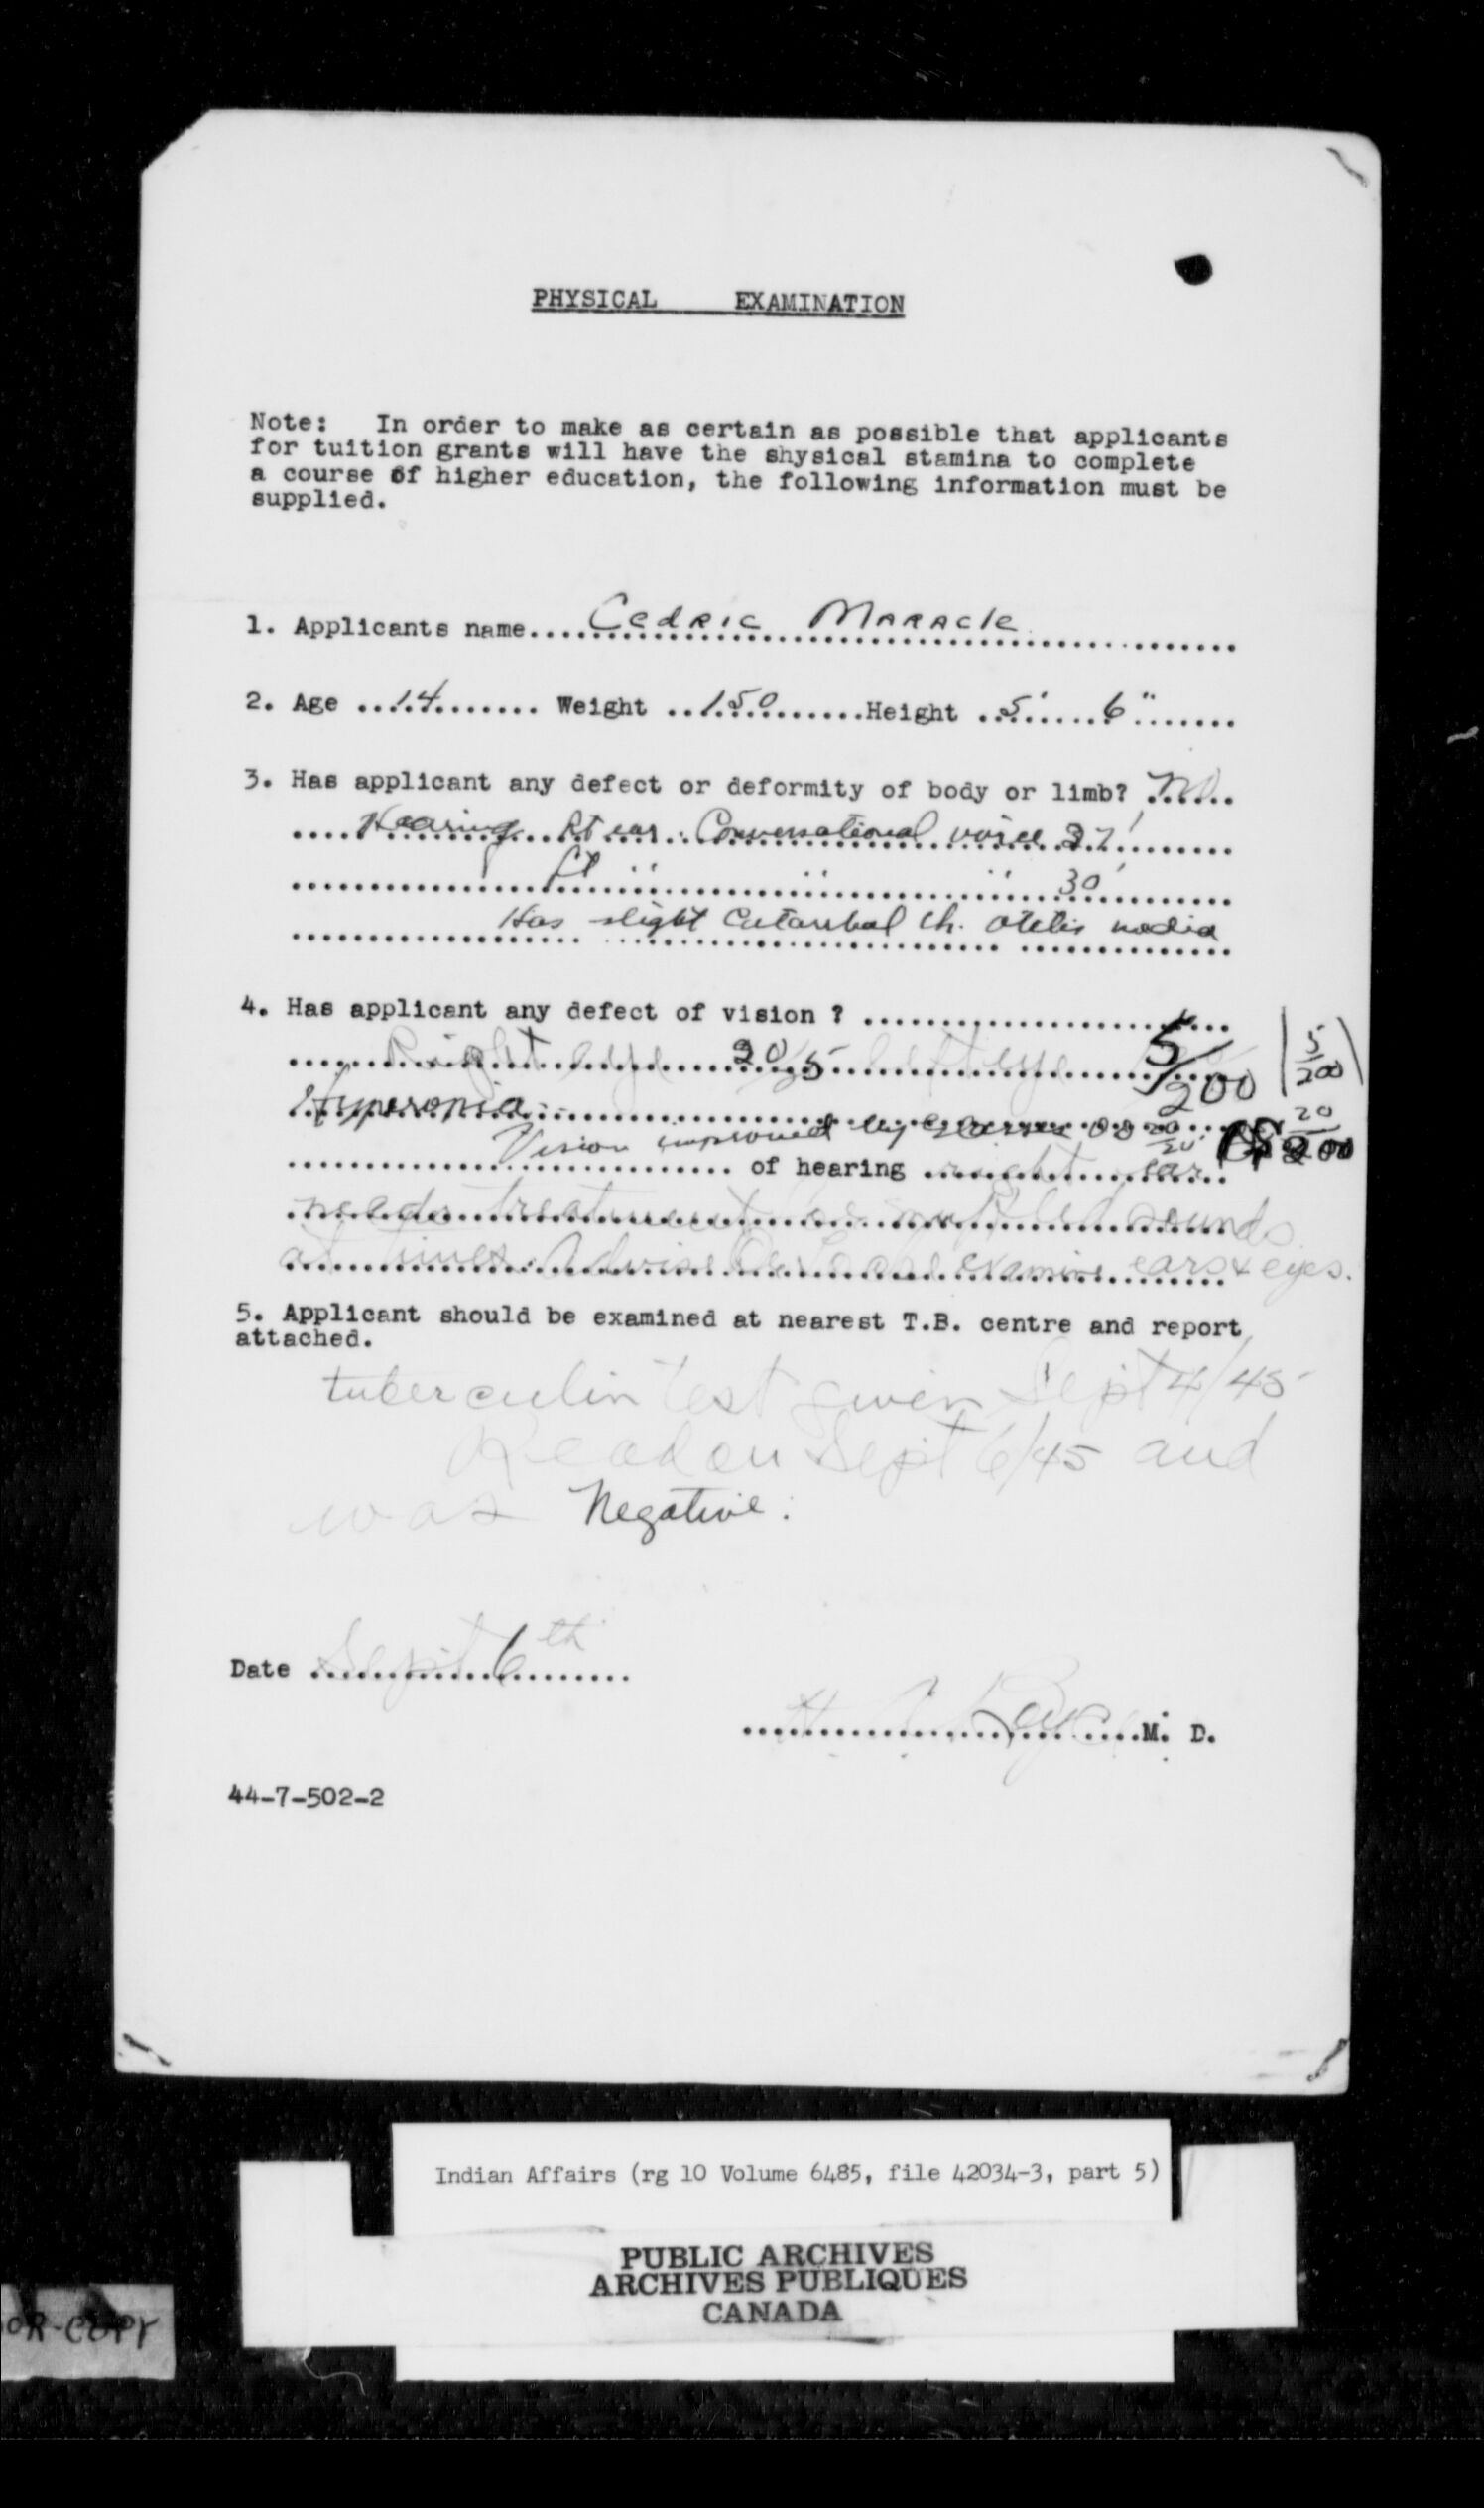 PHYSICAL EXAMINATION
Note: In order to make as certain as possible that applicants
for tuition grants will have the shysical stamina to complete
a course of higher education, the following information must be
supplied.
1. Applicants name....Cedric Maracle
2. Age ...14......... Weight ...150.........Height ...5'......6"......
3. Has applicant any defect or deformity of body or limb? No
Hearing Rt ear. Conversational voice 27'
Lt " " " 30'
Has slight Catarrhal Ch. Otitis media
4. Has applicant any defect of vision ? .......................
5/200
Right eye 20/5 left eye 5/200
Hyperopia
Vision improved by glasses OD 20/20 OS 20/200
of hearing right ear
needs treatment muffled sounds
at times. Advise examine ears & eyes.
5. Applicant should be examined at nearest T.B. centre and report
attached.
tuberculin test given Sept 4/45
Read on Sept 6/45 and
was Negative.
Date Sept 6th
M. D.
44-7-502-2
Indian Affairs (rg 10 Volume 6485, file 42034-3, part 5)
PUBLIC ARCHIVES
ARCHIVES PUBLIQUES
CANADA
OR-COPY